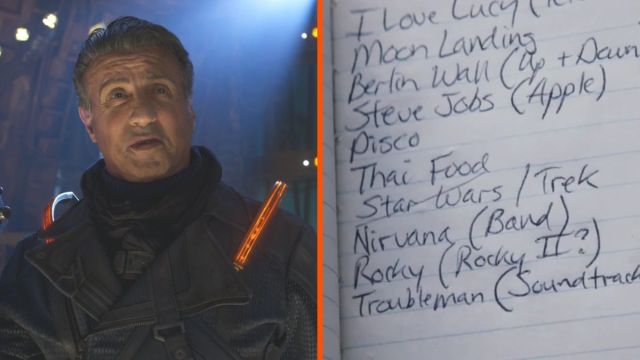 I Love Lucy (
Moon Landing
Berlin Wall (Up + Down
Steve Jobs (Apple)
Disco
Thai Food
Star Wars / Trek
Nirvana (Band)
Rocky (Rocky II?)
Troubleman (Soundtrack